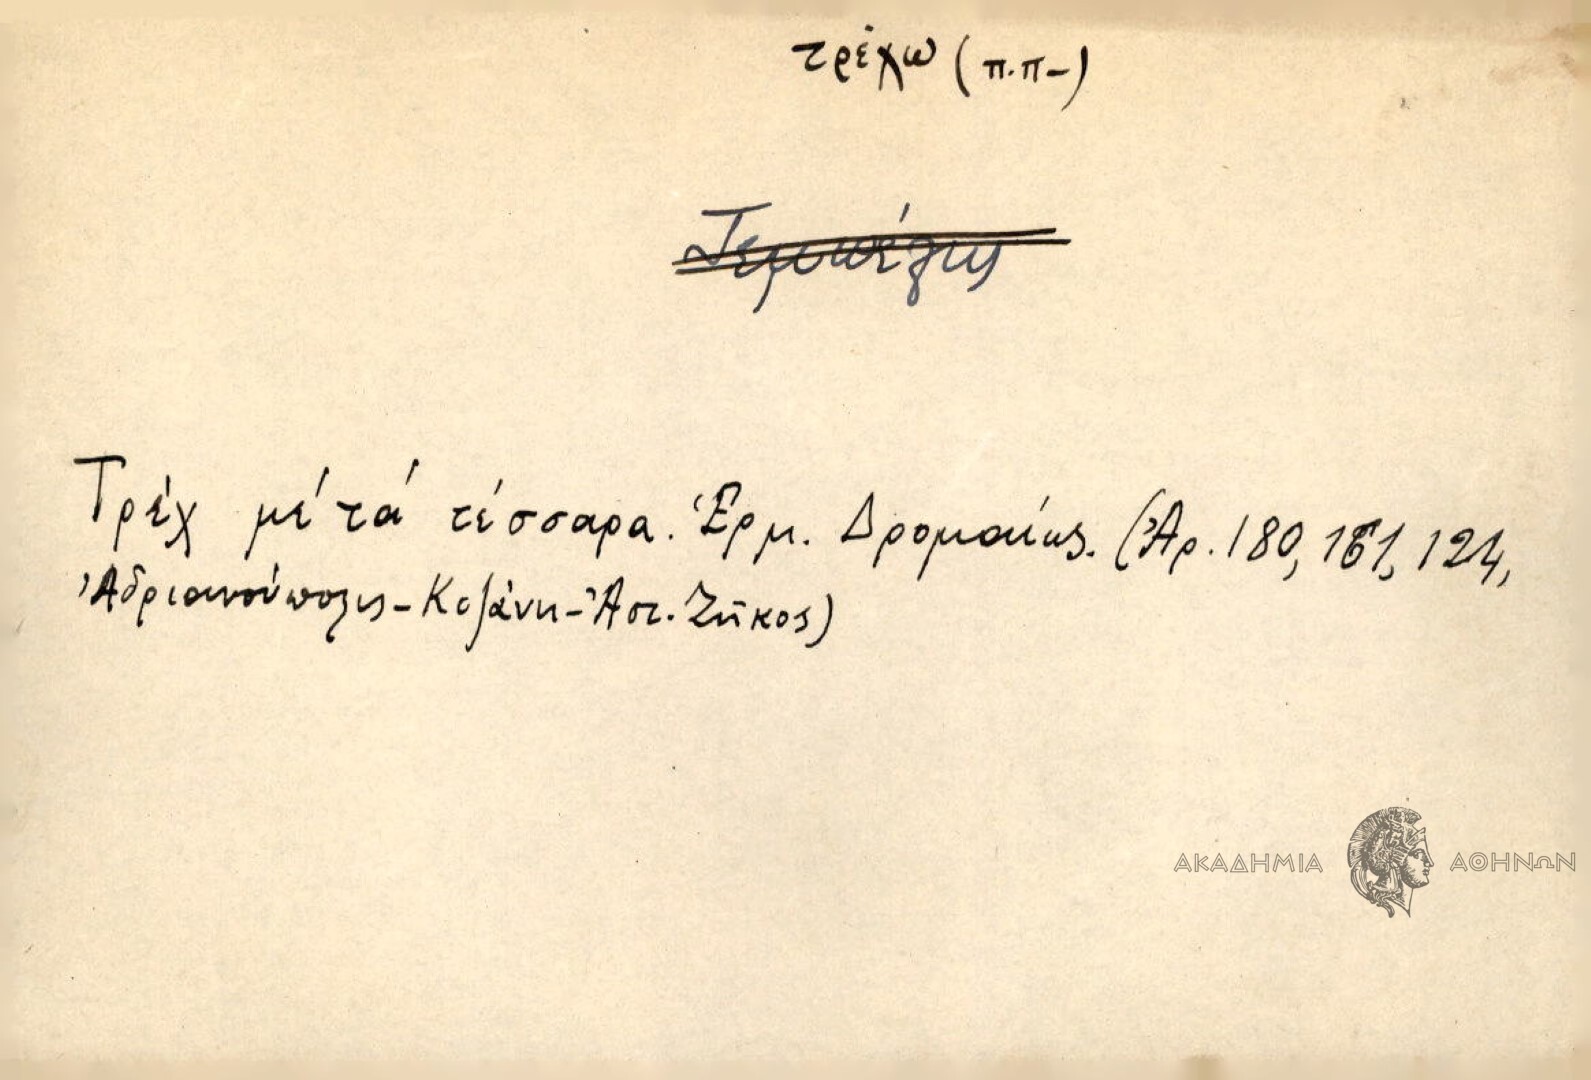 τρέχω (π.π-)
Τρέχ μέ τά τέσσαρα. Ἑρμ. Δρομαίως. (Ἀρ. 180, 161, 124,
Ἀδριανούπολις-Κοζάνη-Ἀστ. Ζῆκος)
ΑΚΑΔΗΜΙΑ ΑΘΗΝΩΝ